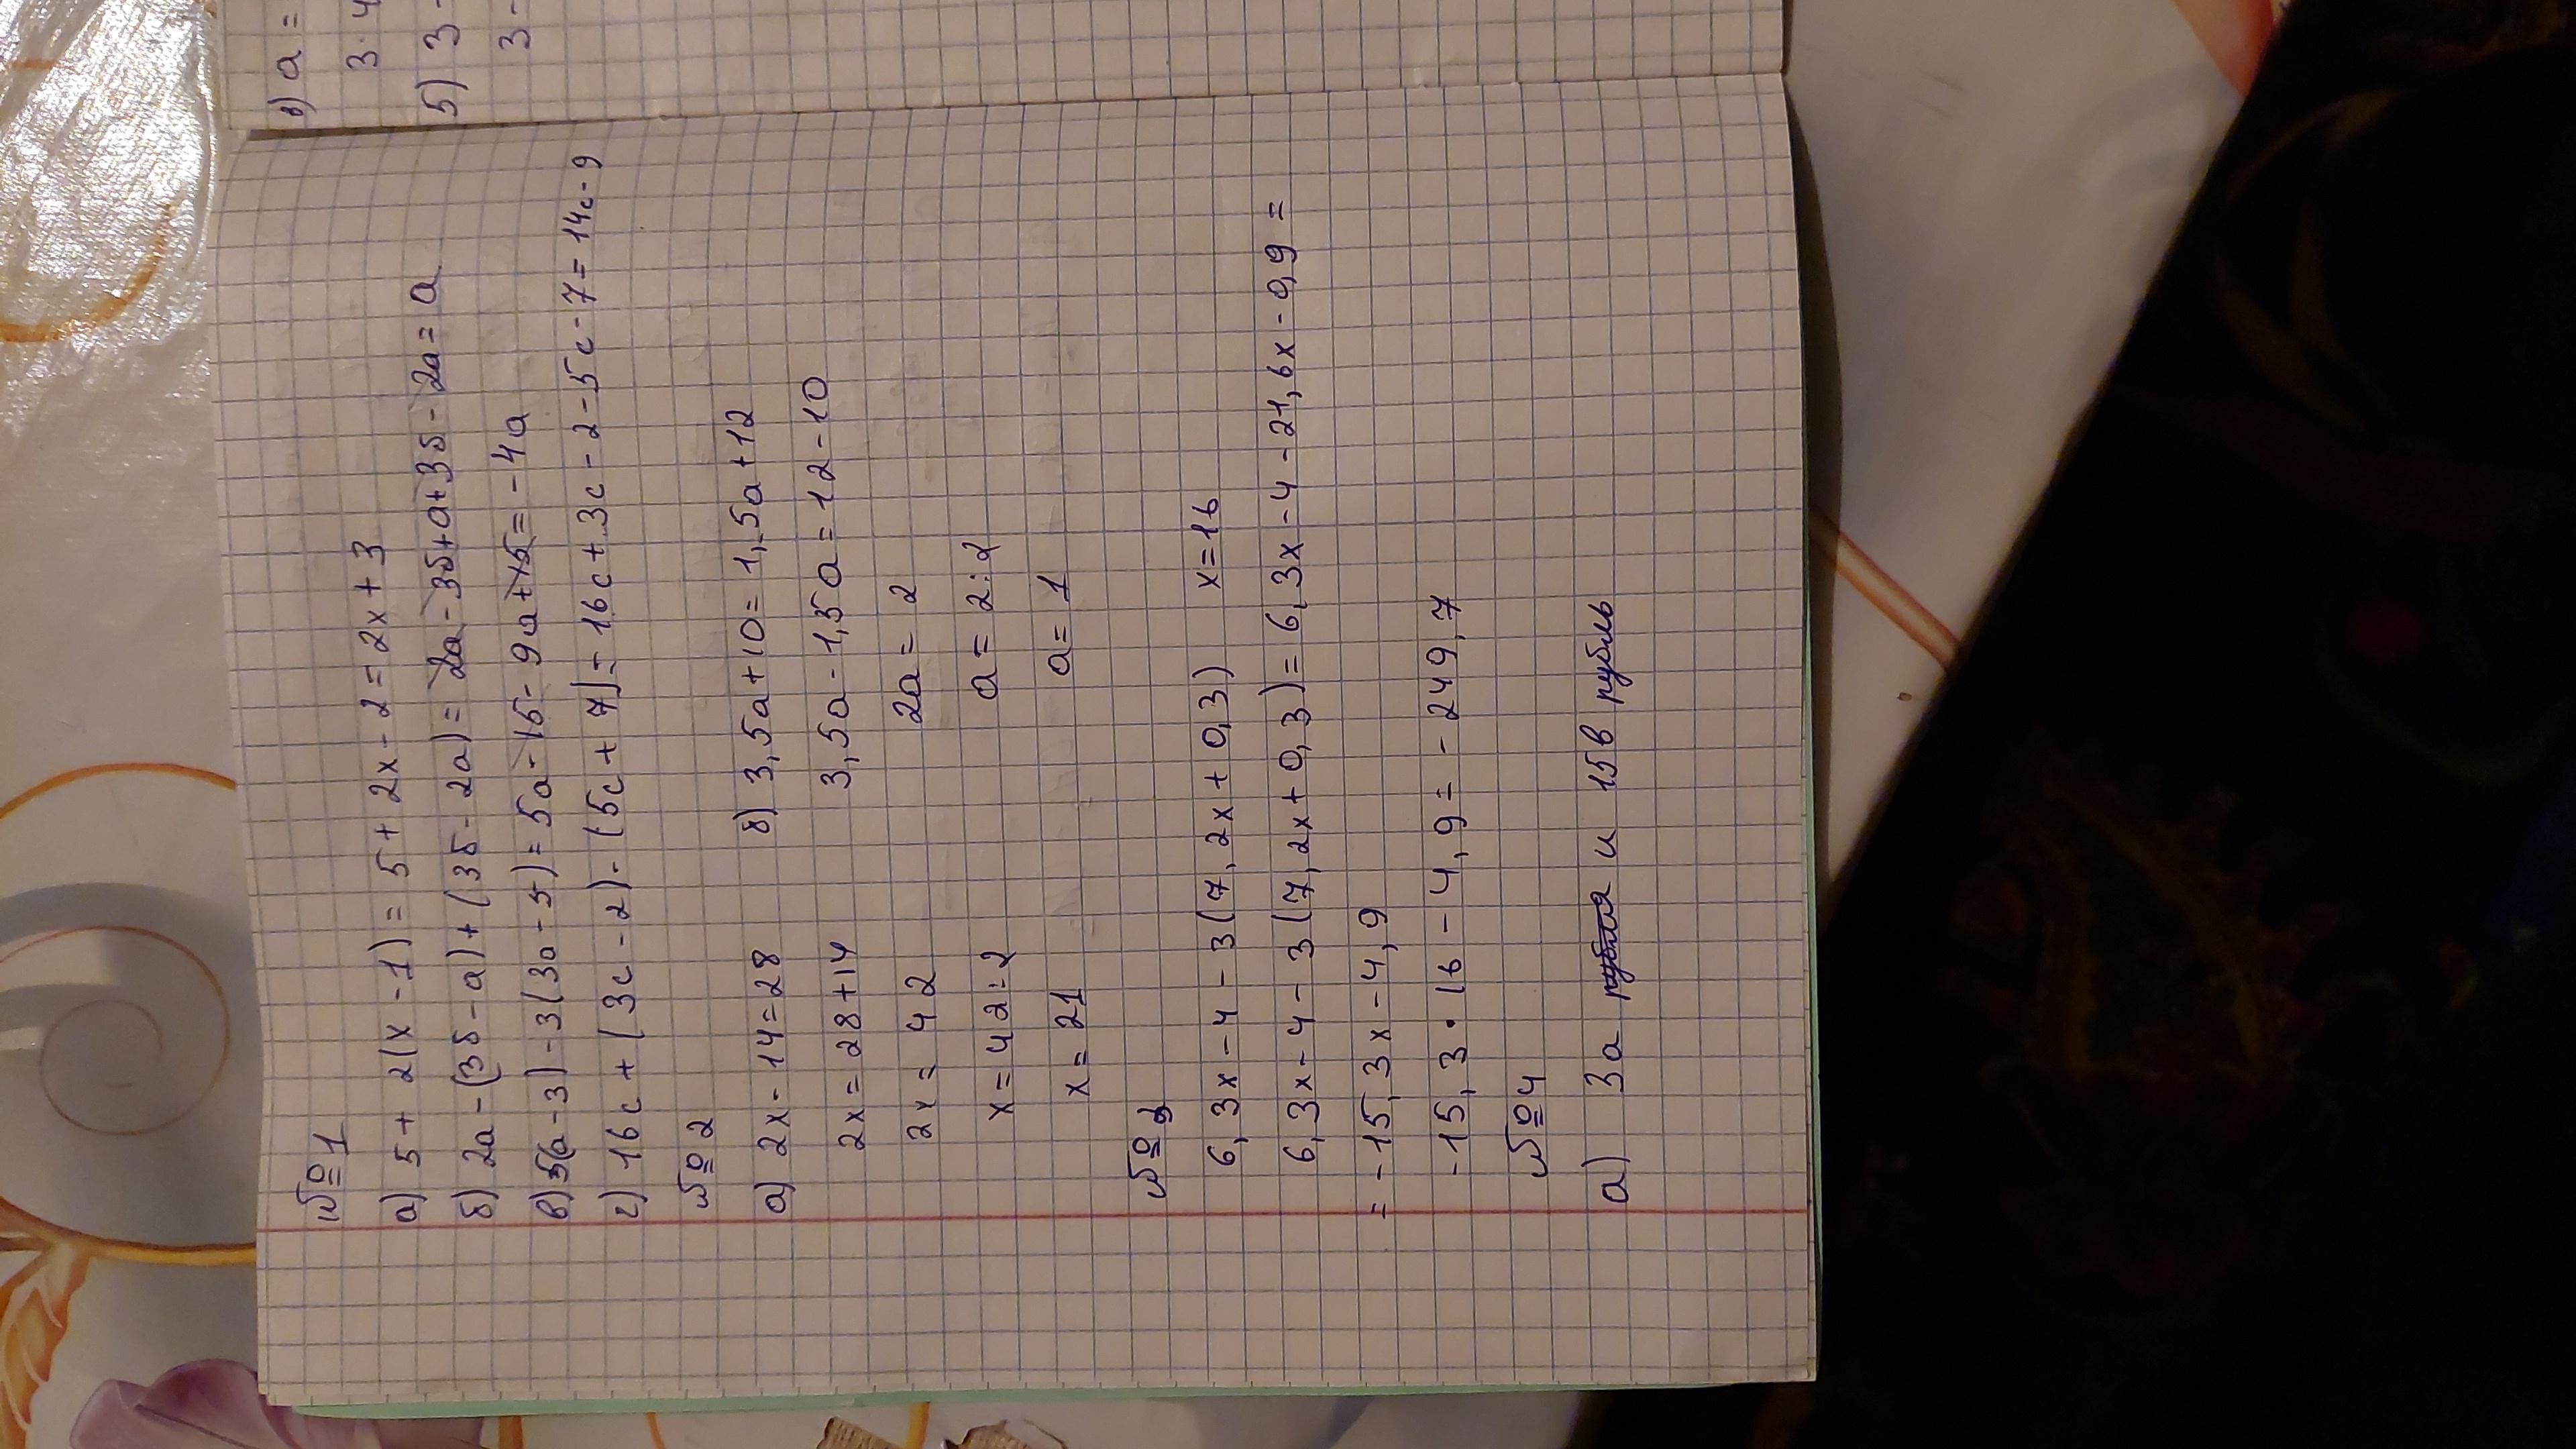 №1
а) 5 + 2(x - 1) = 5 + 2x - 2 = 2x + 3
б) 2a - (3б - a) + (3б - 2a) = 2a - 3б + a + 3б - 2a = a
в) 5(a - 3) - 3(3a - 5) = 5a - 15 - 9a + 15 = -4a
г) 16c + (3c - 2) - (5c + 7) = 16c + 3c - 2 - 5c - 7 = 14c - 9
№2
а) 2x - 14 = 28
2x = 28 + 14
2x = 42
x = 42 : 2
x = 21
б) 3,5a + 10 = 1,5a + 12
3,5a - 1,5a = 12 - 10
2a = 2
a = 2 : 2
a = 1
№3
6,3x - 4 - 3(7,2x + 0,3) x = 16
6,3x - 4 - 3(7,2x + 0,3) = 6,3x - 4 - 21,6x - 0,9 =
= -15,3x - 4,9
-15,3 · 16 - 4,9 = -249,7
№4
а) 3a рубля и 15в рубль
в) a =
3 · 4
5) 3 -
3 -